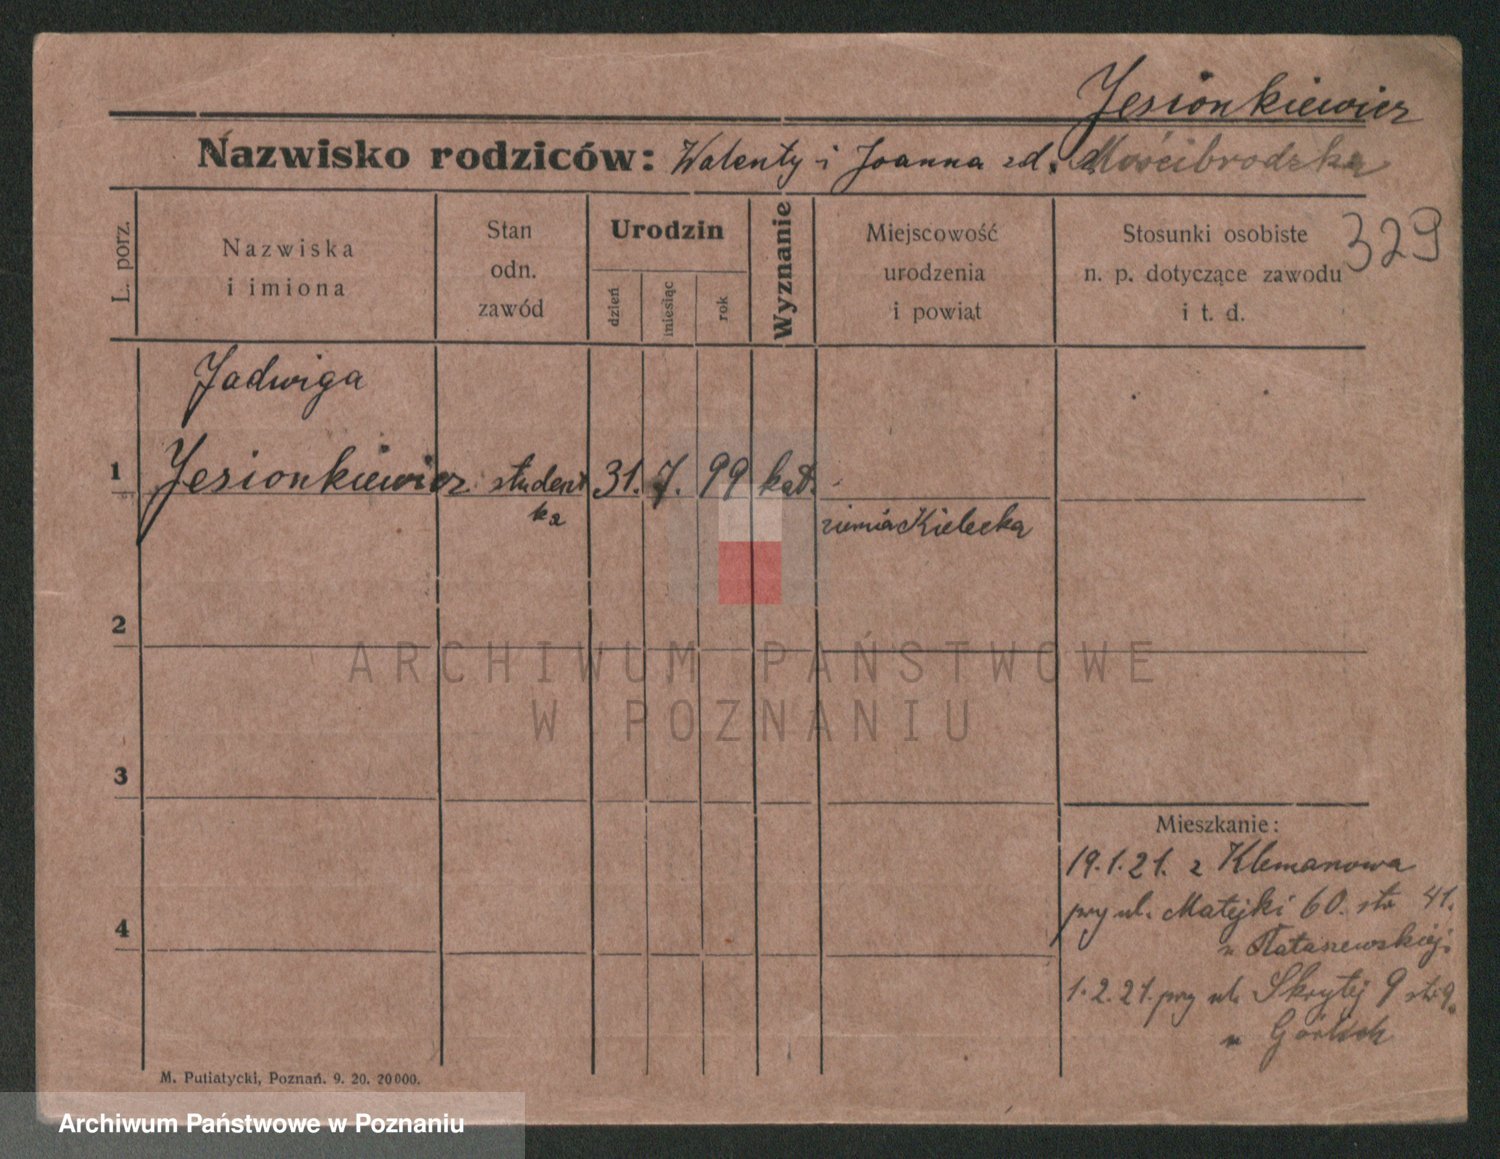 Jesionkiewicz
Nazwisko rodziców: Walenty i Joanna zd. Mościbrodzka
329
L. porz.
Nazwiska
i imiona
Stan
odn.
zawód
Urodzin
dzień
miesiąc
rok
Wyznanie
Miejscowość
urodzenia
i powiat
Stosunki osobiste
n. p. dotyczące zawodu
i t. d.
Jadwiga
1 Jesionkiewicz student 31. 7. 99 kat.
ka
ziemia Kielecka
2
ARCHIWUM PAŃSTWOWE
W POZNANIU
3
Mieszkanie:
19.1.21. z Klemanowa
przy ul. Matejki 60. str 41.
4
u Rataszewskiej
1.2.21. przy ul. Skrytej 9 str 9.
u
M. Putiatycki, Poznań. 9. 20. 20000.
Archiwum Państwowe w Poznaniu